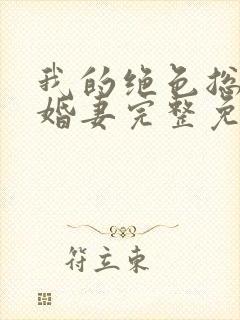 我的绝色总
婚妻完整免
符立东